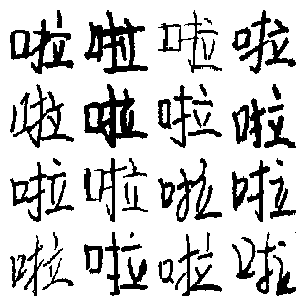 啦啦啦啦
啦啦啦啦
啦啦啦啦
啦啦啦啦